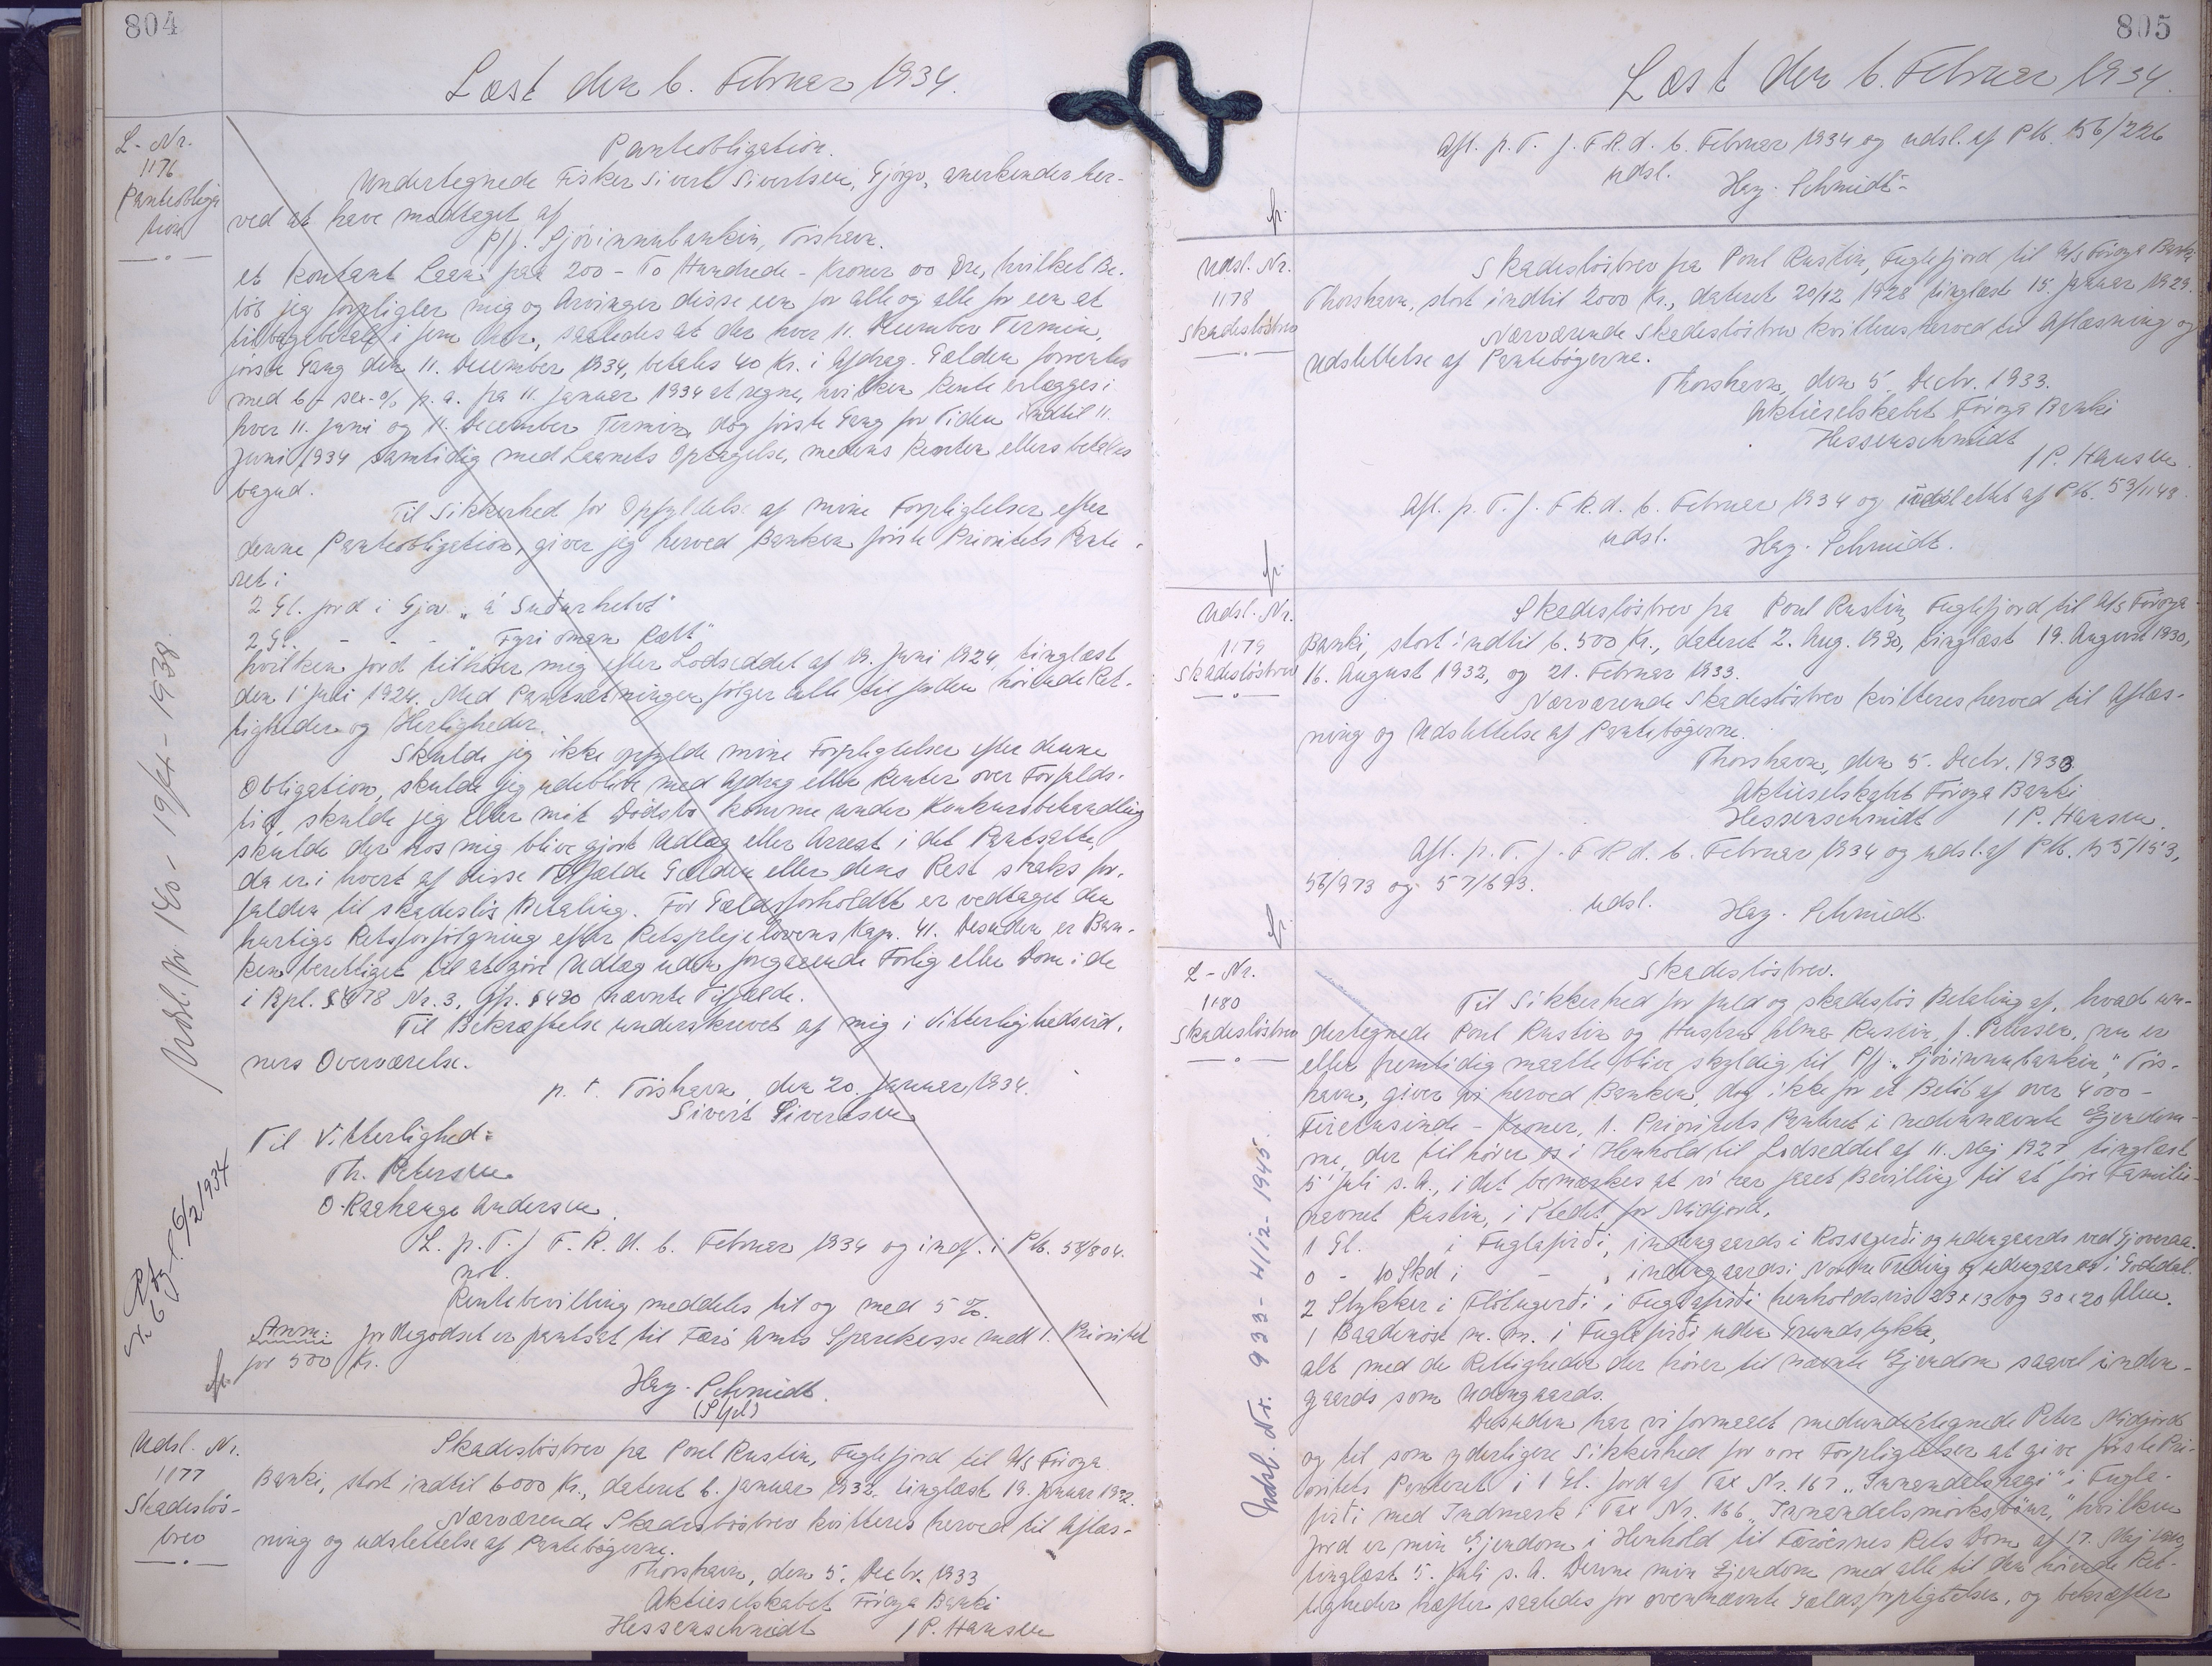 804
Læst den 6. Februar 1934.
L-Nr.
1176
Panteobliga
tion
Panteobligation.
Undertegnede Fisker Sivert Sivertsen, Gjógv, anerkender her-
ved at have modtaget af
P/f. Sjóvinnubankin, Tórshavn.
et kontant Laan paa 200 - To Hundrede - Kroner 00 Øre, hvilket Be-
løb jeg forpligter mig og Arvinger disse een for alle og alle for een at
tilbagebetale i fem Aar, saaledes at der hver 11. December Termin,
første Gang den 11. December 1934, betales 40 Kr. i Afdrag. Gælden forrentes
med 6 - sex - % p. a. fra 11. Januar 1934 at regne, hvilken Rente erlægges i
hver 11. Juni og 11. December Termin, dog første Gang for Tiden indtil 11.
Juni 1934 samtidig med Laanets Optagelse, medens Renten ellers betales
bagud.
Til Sikkerhed for Opfyldelse af mine Forpligtelser efter
denne Panteobligation, giver jeg herved Banken første Prioritets Pante-
ret i
2 Gl. jord i Gjov „á Suðurhelvt"
2 Gl. - - - „Fyri oman Rætt"
hvilken jord tilhører mig efter Lodseddel af 13. Juni 1924, tinglæst
den 1 juli 1924. Med Pantsætningen følger alle til Jorden hørende Ret-
tigheder og Herligheder.
Skulde jeg ikke opfylde mine Forpligtelser efter denne
Obligation, skulde jeg udeblive med Afdrag eller Renter over Forfalds-
tid, skulde jeg eller mit Dødsbo komme under Konkursbehandling
skulde der hos mig blive gjort Udlæg eller Arrest i det Pantsatte,
da er i hvert af disse Tilfælde Gælden eller dens Rest straks for-
falden til skadesløs Betaling. For Gældsforholdet er vedtaget den
hurtige Retsforfølgning efter Retsplejelovens Kap. 41. Desuden er Ban-
ken berettiget til at gøre Udlæg uden foregaaende Forlig eller Dom i de
i Rpl. § 478 Nr. 3, jfr. § 490 nævnte Tilfælde.
Til Bekræftelse underskrevet af mig i Vitterlighedsvid-
ners Overværelse.
p. t. Tórshavn, den 20. Januar 1934.
Sivert Sivertsen
Til Vitterlighed:
Th. Petersen
O. Kaahauge Andersen.
L. p. T. f. F. R. d. 6. Februar 1934 og indf. i Ptb. 58/804.
not.
Rentebevilling meddeles til og med 5 %.
Anm: Jordegodset er pantsat til Færø Amts Sparekasse med 1. Prioritet
for 500 Kr.
Hag. Schmidt.
fr.
Udsl. Nr. 140 - 19/4 - 1938.
6/2 1934
Udsl. Nr.
1177
Skadesløs-
brev
Skadesløsbrev fra Poul Rustin, Fuglefjord til A/S Föroya
Banki, stort indtil 6000 Kr., dateret 6. Januar 1932 tinglæst 19. Januar 1932.
Nærværende Skadesløsbrev kvitteres herved til Aflæs-
ning og udslettelse af Pantebøgerne.
Thorshavn, den 5. Decbr. 1933
Aktieselskabet Föroya Banki
Hessenschmidt / P. Hansen
805
Læst den 6. Februar 1934.
Afl. p. T. f. F.R. d. 6. Februar 1934 og udsl. af Ptb. 56/226
udsl.
Hag. Schmidt.
fr.
Udsl. Nr.
1178
Skadesløsbrev
Skadesløsbrev fra Poul Rustin, Fuglefjord til A/S Föroya Banki
Thorshavn, stort indtil 2000 Kr., dateret 20/12 1928 tinglæst 15. Januar 1929.
Nærværende Skadesløsbrev kvitteres herved til Aflæsning og
Udslettelse af Pantebøgerne.
Thorshavn, den 5. Decbr. 1933.
Aktieselskabet Föroya Banki
Hessenschmidt
/ P. Hansen
Afl. p. T. f. F R. d. 6. Februar 1934 og udslettet af Ptb. 53/1148.
udsl.
Hag. Schmidt.
fr.
Udsl. Nr.
1179
Skadesløsbrev
Skadesløsbrev fra Poul Rustin, Fuglefjord til A/S Föroya
Banki, stort indtil 6.500 Kr., dateret 2. Aug. 1930, tinglæst 19. August 1930,
16. August 1932, og 21. Februar 1933.
Nærværende Skadesløsbrev kvitteres herved til Aflæs-
ning og Udslettelse af Pantebøgerne.
Thorshavn, den 5. Decbr. 1933
Aktieselskabet Föroya Banki
Hessenschmidt / P. Hansen.
Afl. p. T. f. F R d. 6. Februar 1934 og udsl. af Ptb. 55/153,
56/973 og 57/693.
udsl.
Hag. Schmidt.
fr.
L-Nr.
1180
Skadesløsbrev
Skadesløsbrev.
Til Sikkerhed for fuld og skadesløs Betaling af, hvad un-
dertegnede Poul Rustin og Hustru Alma Rustin, f. Petersen, nu er
eller fremtidig maatte blive skyldig til P/f. „Sjóvinnubankin", Tórs-
havn, giver vi herved Banken, dog ikke for et Beløb af over 4000 -
Firetusinde - Kroner, 1. Prioritets Panteret i nedennævnte Ejendom-
me, der tilhører os i Henhold til Lodseddel af 11. Maj 1927, tinglæst
5 Juli s. A., idet bemærkes at vi har faaet Bevilling til at føre Familie-
navnet Rustin, i Stedet for Midjord.
1 Gl. i Fuglafirði, indengaards i Rossagerði og udengaards ved Gjoveraa.
0 - 10 Skd i - , indengaards i Norðm Triding og udengaards i Goddal.
2 Stykker i Flötugerði i Fuglafirði henholdsvis 23 x 13 og 30 x 20 Alen.
1 Baadenøst m. m. i Fuglafirði uden Grundstykke,
alt med de Rettigheder der hører til nævnte Ejendom saavel inden-
gaards som Udengaards.
Desuden har vi formaaet medundertegnede Peter Midjord
og til som yderligere Sikkerhed for vore Forpligtelser at give første Pri-
oritets Panteret i 1 Gl. Jord af Tax Nr. 167 „Innandalshagi" i Fugla-
firði med Indmark i Tax Nr. 166 „Innandelsmørksbönur," hvilken
Jord er min Ejendom i Henhold til Færøernes Rets Dom af 17. Maj
tinglæst 5. Juli s. A. Denne min Ejendom med alle til den hørende Ret-
tigheder hæfter saaledes for ovennævnte Gældsforpligtelser, og bekræfter
Udsl. Nr. 933 - 4/12 - 1945.